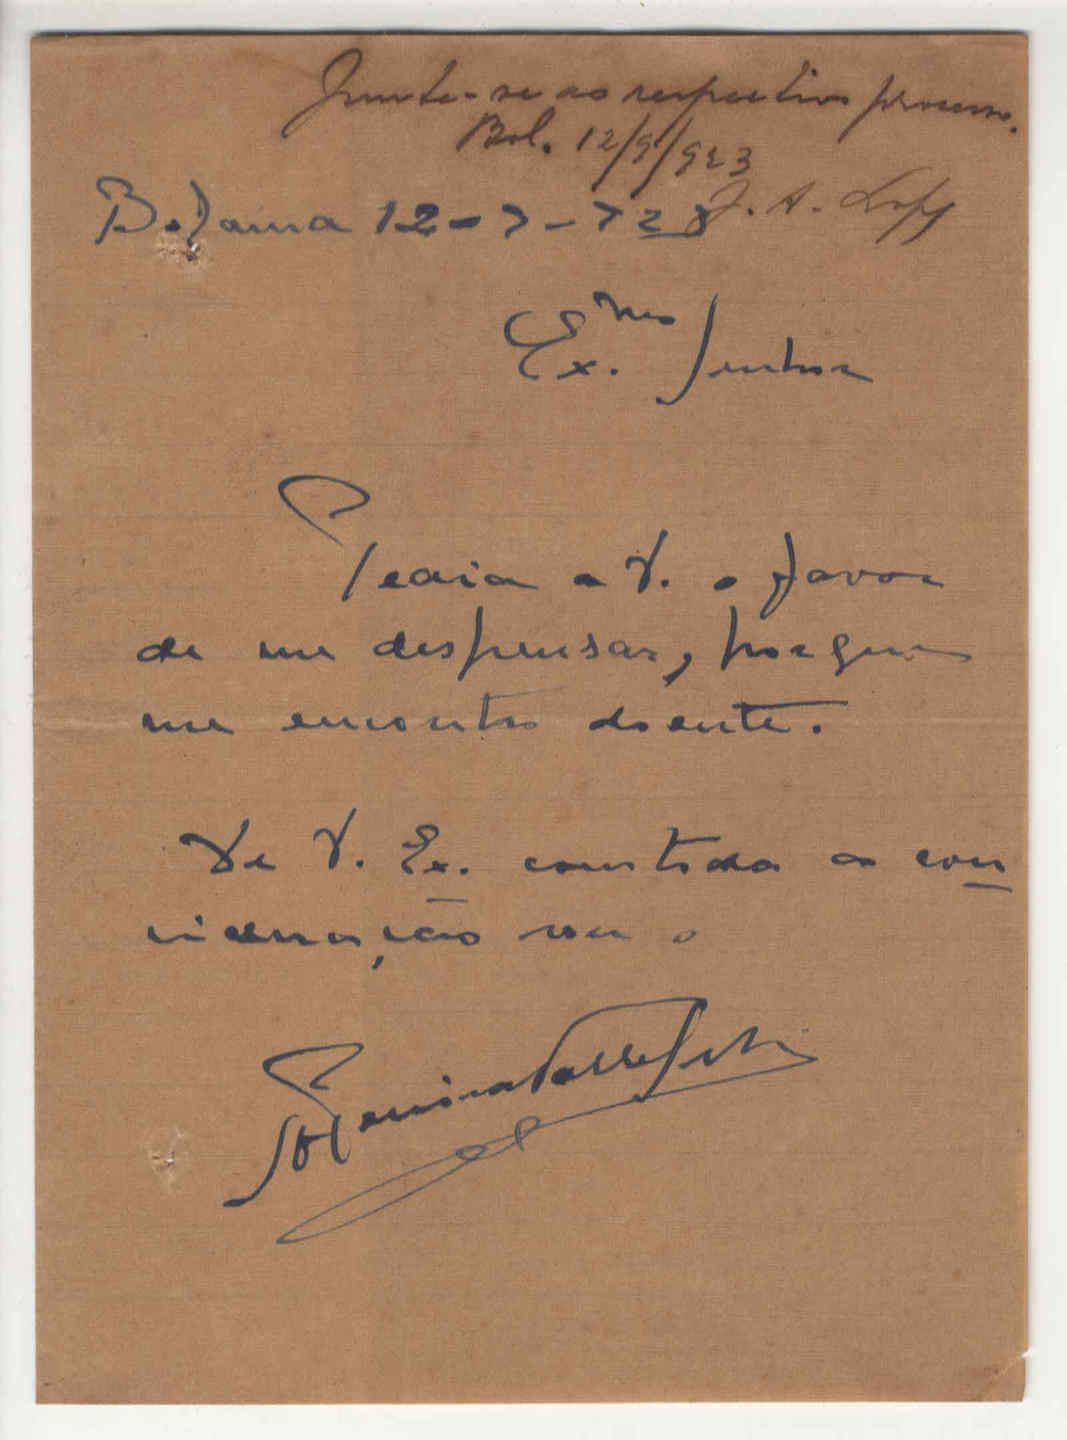 Junte-se ao respectivo processo.
Bol. 12/9/923
J. A. Lopes
Bolama 12-9-923
Ex.mo Senhor
Pedia a V. o favor
de me despensar, porque
me encontro doente.
De V. Ex. com toda a con
sideração sou o